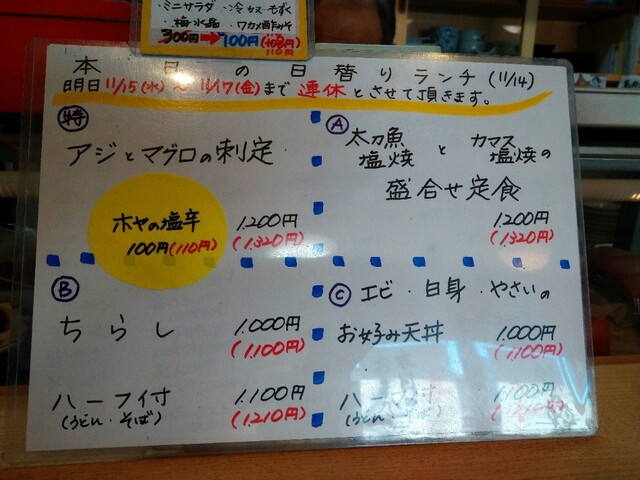 ・ミニサラダ ・冷ナス ・もずく
・梅水晶 ・ワカメ酢みそ
300円→100円(110円)
本日の日替りランチ(11/14)
明日11/15(水)〜11/17(金)まで連休とさせて頂きます。
特
アジとマグロの刺定
ホヤの塩辛
100円(110円)
1.200円
(1.320円)
A
太刀魚塩焼とカマス塩焼の
盛合せ定食
1.200円
(1.320円)
B
ちらし 1.000円
(1.100円)
ハーフイ寸 1.100円
(うどん・そば) (1.210円)
C エビ・白身・やさいの
お好み天丼 1.000円
(1.100円)
ハーフイ寸 1.100円
(うどん・そば)